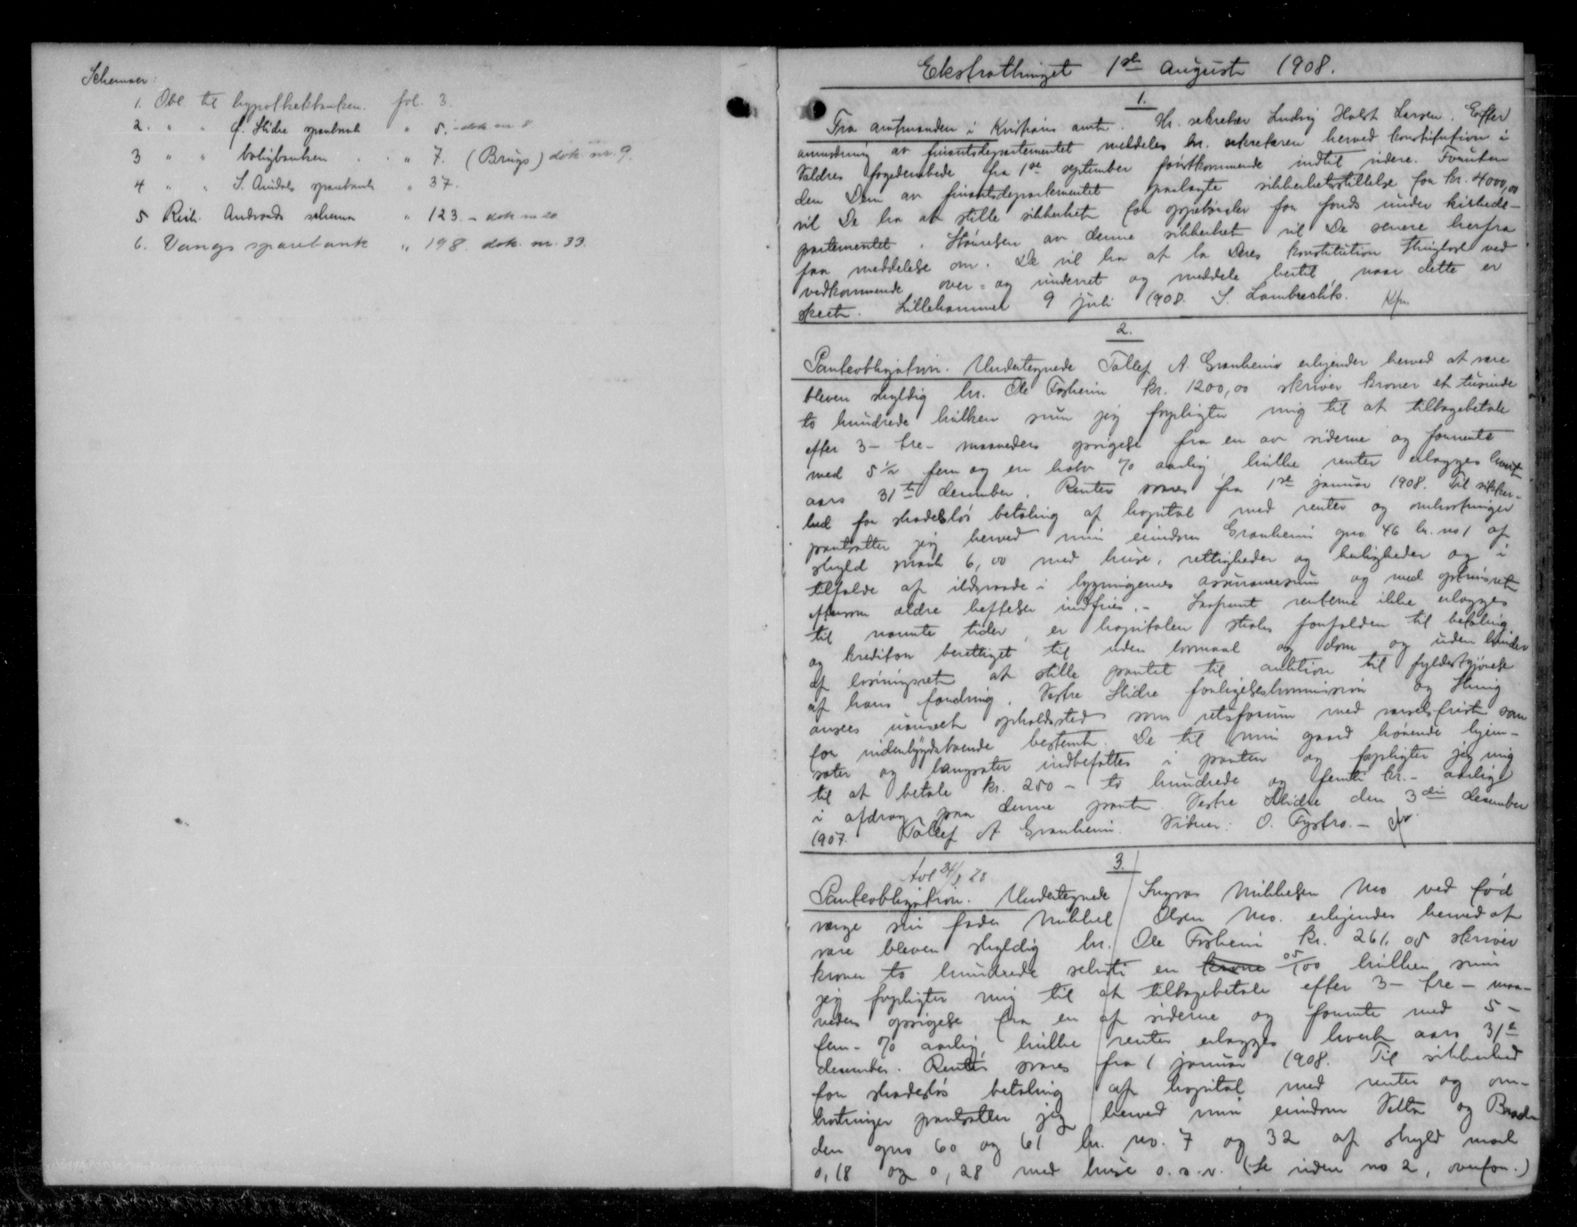 Schemaer:
1. Obl. til hypothekbanken. fol. 3.
2. " " Ø. Slidre sparebank " 5. - dok nr 8
3 " " boligbanken . . " 7. (Brugs) dok nr. 9.
4 " " S. Aurdals sparebank " 37.
5 Resil. Andvords schema " 123. - dok nr 20
6. Vangs sparebank " 198. dok. nr. 33.
Ekstrathinget 1ste august 1908.
1.
Fra amtmanden i Kristians amt. Hr. sekretær Ludvig Holst Larsen. Efter
anmodning av finantsdepartementet meddeles hr. sekretæren herved konstitution i
Valdres fogedembede fra 1ste september førstkommende indtil videre. Foruten
den Dem av finantsdepartementet paalagte sikkerhetsstillelse for kr. 4000,00
vil De ha at stille sikkerhet for oppebørsler for fonds under kirkede-
partementet. Størrelsen av denne sikkerhet vil De senere herfra
faa meddelelse om. De vil ha at la Deres konstitution thinglæst ved
vedkommende over- og underret og meddele hertil, naar dette er
skeet. Lillehammer 9 juli 1908. S. Lambrechts.
2.
Panteobligation. Undertegnede Tollef A Granheim erkjender herved at være
bleven skyldig hr. Ole Forheim kr. 1200,00 skriver kroner et tusinde
to hundrede hvilken sum jeg forpligter mig til at tilbagebetale
efter 3 - tre - maaneders opsigelse fra en av siderne og forrente
med 5½ fem og en halv % aarlig, hvilke renter erlægges hvert
aars 31te desember. Renter svares fra 1ste januar 1908. Til sikker-
hed for skadesløs betaling af kapital med renter og omkostninger
pantsætter jeg herved min eiendom Granheim gno 46 br. no 1 af
skyld mark 6,00 med huse, rettigheder og herligheder og i
tilfælde af ildsvaade i bygningernes assurancesum og med optrinsret
eftersom ældre heftelser indfries. - Saafremt renterne ikke erlægges
til nævnte tider, er kapitalen straks forfalden til betaling
og kreditor berettiget til uden lovmaal og dom og uden hinder
af løsningsret at stille pantet til auktion til fyldestgjørelse
af hans fordring. Vestre Slidre forligelseskommission og thing
ansees uanseet opholdssted som retsforum med varselsfrist som
for indenbygdsboende bestemt. De til min gaard hørende hjem-
sæter og langsæter indbefattes i panten og forpligter jeg mig
til at betale kr. 250 - to hundrede og femti kr. - aarlig
i afdrag paa denne pant. Vestre Slidre den 3die desember
1907. Tollef A Granheim. Vidner: O. Fystro. -
3.
Avl 24/8 28
Panteobligation. Undertegnede Ingvar Mikkelsen Mo ved født
værge sin fader Mikkel Olsen Mo. erkjender herved at
være bleven skyldig hr. Ole Forheim kr. 261,05 skriver
kroner to hundrede seksti en krone 05/100 hvilken sum
jeg forpligter mig til at tilbagebetale efter 3 - tre - maa-
neders opsigelse fra en af siderne og forrente med 5 -
fem - % aarlig, hvilke renter erlægges hvert aars 31te
desember. Renter svares fra 1 januar 1908. Til sikkerhed
for skadesløs betaling af kapital med renter og om-
kostninger pantsætter jeg herved min eiendom Velta og
den gno 60 og 61 br. no. 7 og 32 af skyld mark
0,18 og 0,28 med huse o.s.v. (Se siden no 2, ovenfor.)